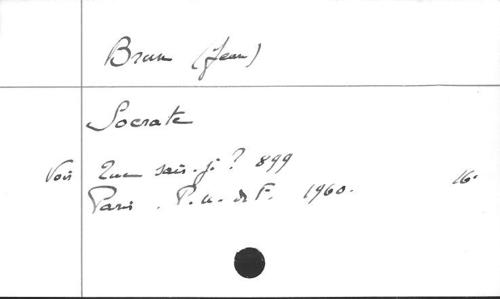 Brun (Jean)
Socrate
Voir Que sais-je? 899
Paris. P.U. de F. 1960. 16°